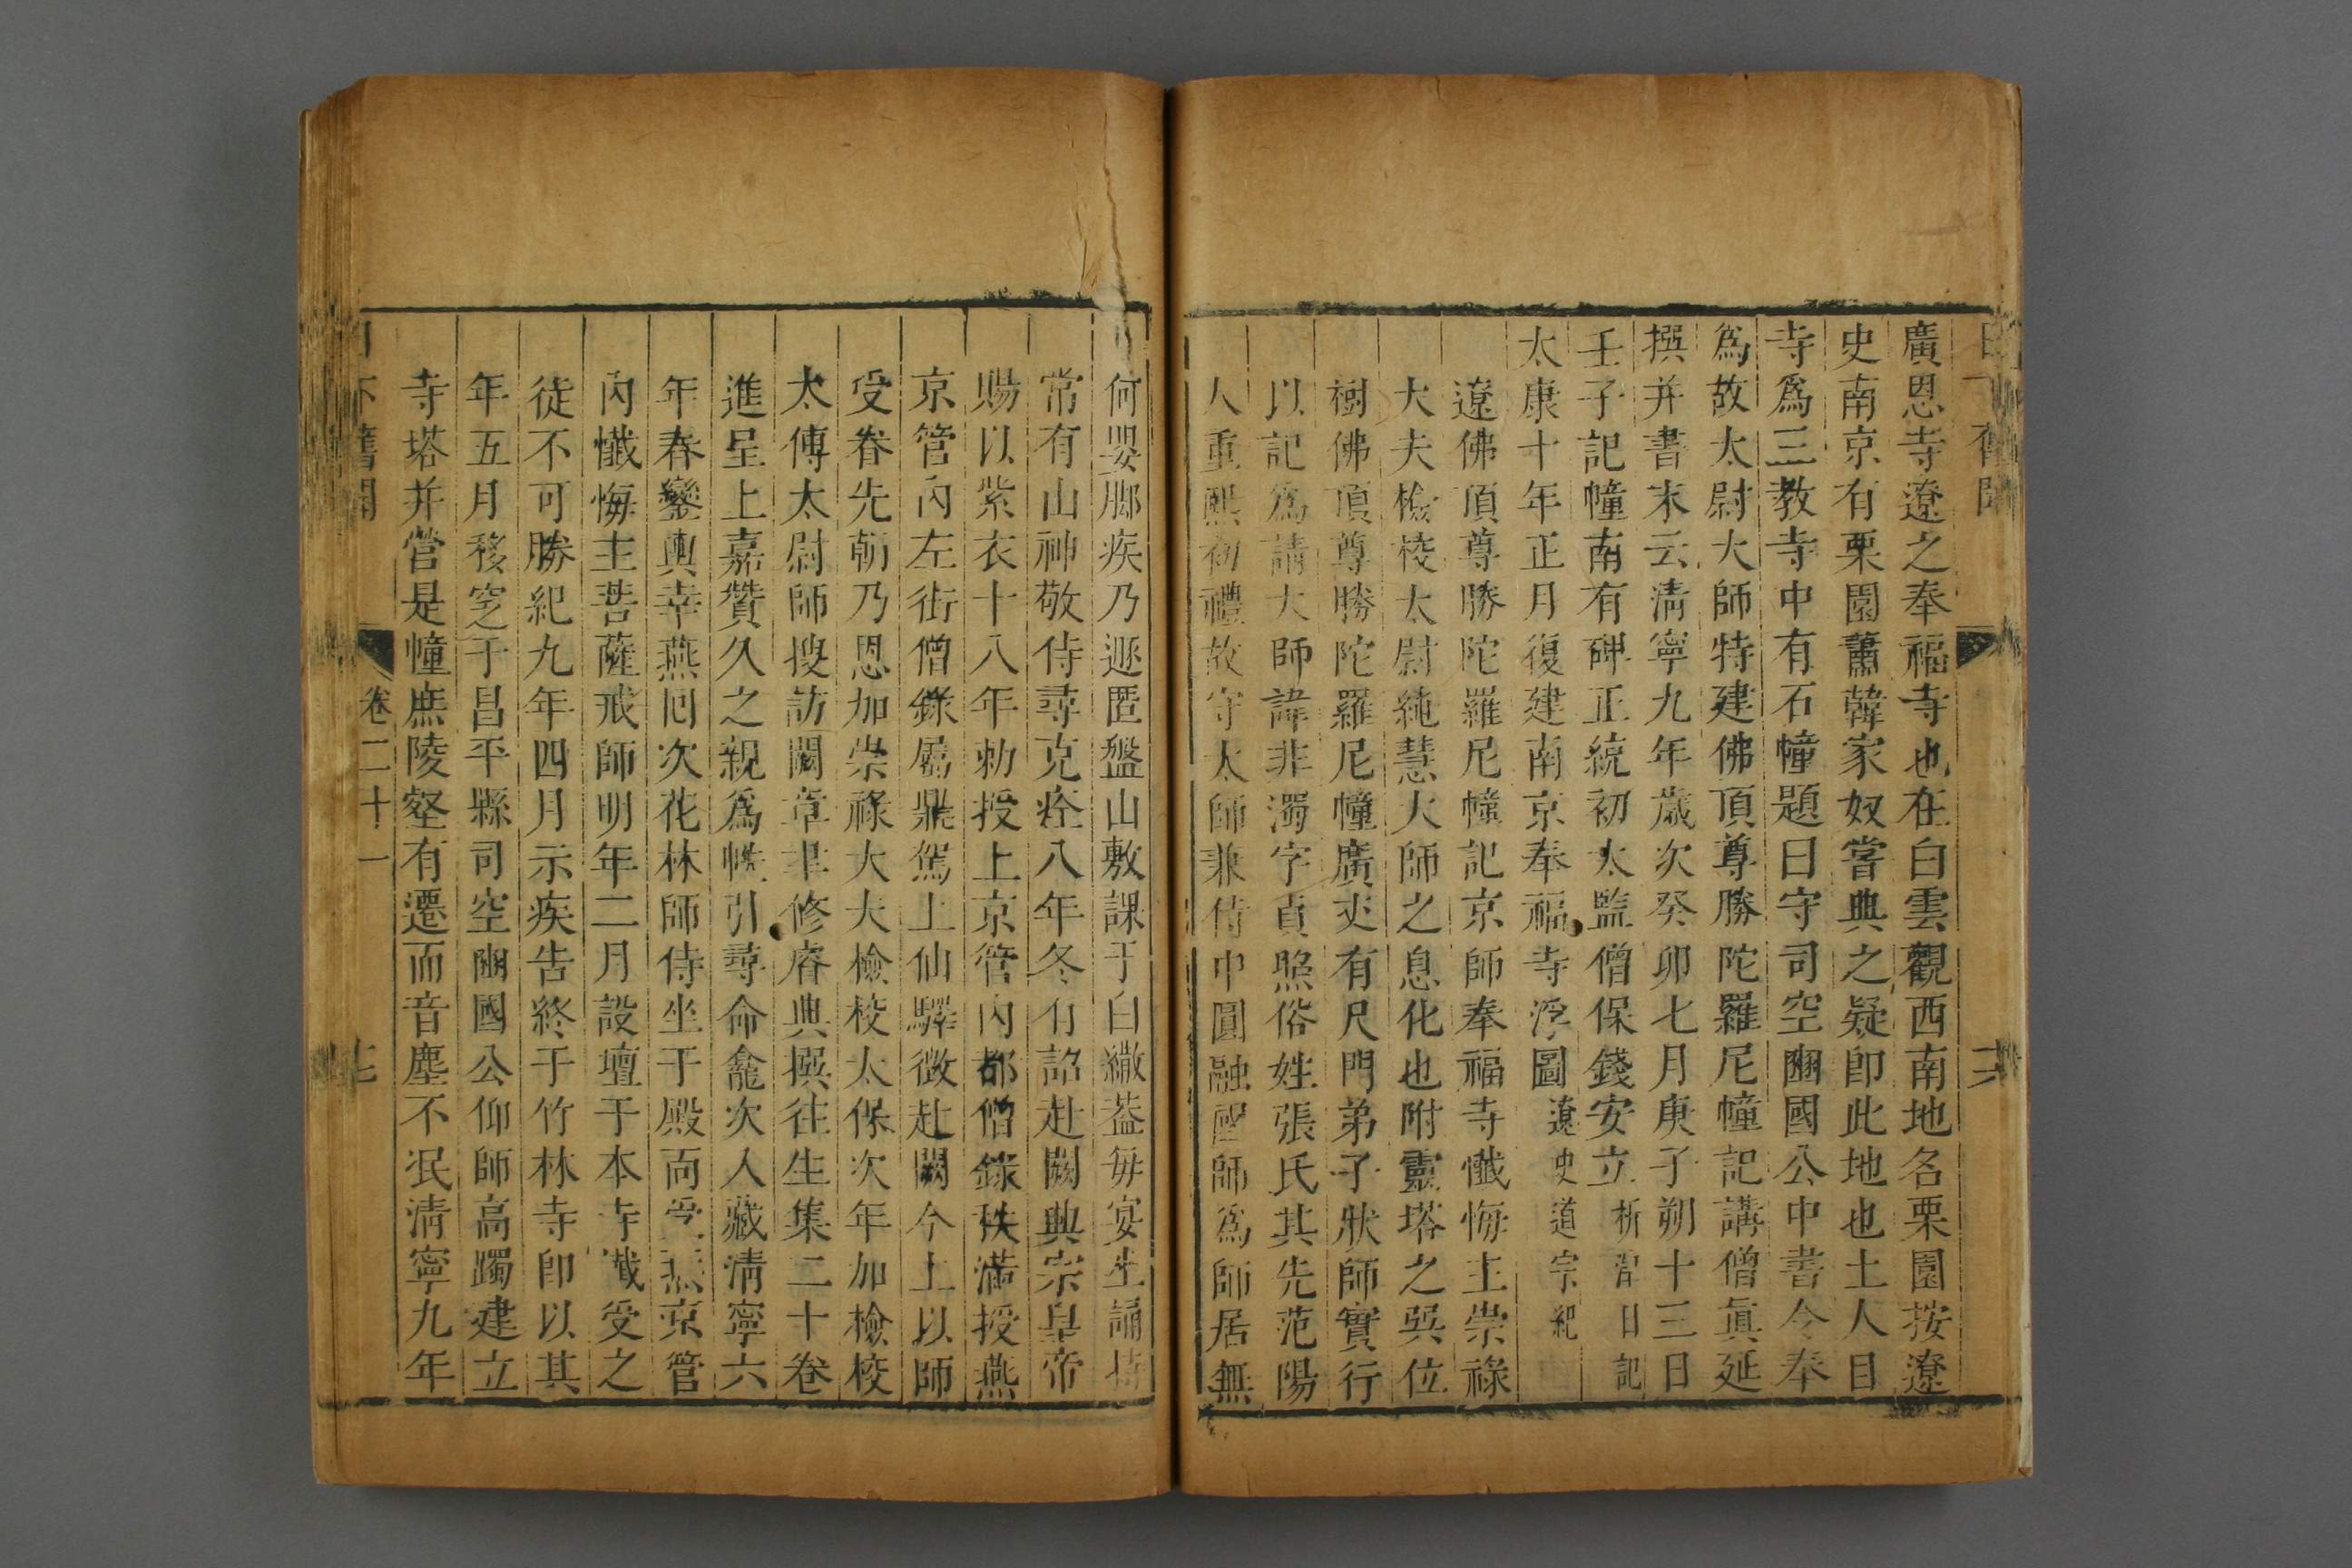 廣恩寺遼之奉福寺也在白雲觀西南地名栗園按遼
史南京有栗園蕭韓家奴嘗典之疑卽此地也土人目
寺爲三教寺中有石幢題曰守司空豳國公中書令奉
爲故太尉大師特建佛頂尊勝陀羅尼幢記講僧眞延
撰并書末云淸寧九年歲次癸卯七月庚子朔十三日
壬子記幢南有碑正統初太監僧保錢安立析津日記
太康十年正月復建南京奉福寺浮圖遼史道宗紀
遼佛頂尊勝陀羅尼幢記京師奉福寺懺悔主崇祿
大夫檢校太尉純慧大師之息化也附靈塔之巽位
樹佛頂尊勝陀羅尼幢廣丈有尺門弟子狀師實行
以記爲請大師諱非濁字貞照俗姓張氏其先范陽
人重熙初禮故守太師兼侍中圓融國師爲師居無
何嬰腳疾乃遯匿盤山敷課于白繖葢每宴坐誦持
常有山神敬侍尋克痊八年冬有詔赴闕興宗皇帝
賜以紫衣十八年勅授上京管內都僧錄秩滿授燕
京管內左街僧錄屬鼎駕上仙驛徵赴闕今上以師
受眷先朝乃恩加崇祿大夫檢校太保次年加檢校
太傅太尉師搜訪闕章聿修睿典撰往生集二十卷
進呈上嘉贊久之親爲帙引尋命龕次入藏淸寧六
年春鑾輿幸燕回次花林師侍坐于殿面受燕京管
內懺悔主菩薩戒師明年二月設壇于本寺懺受之
徒不可勝紀九年四月示疾告終于竹林寺卽以其
年五月移窆于昌平縣司空豳國公仰師高躅建立
寺塔并營是幢庶陵壑有遷而音塵不泯淸寧九年
卷二十一